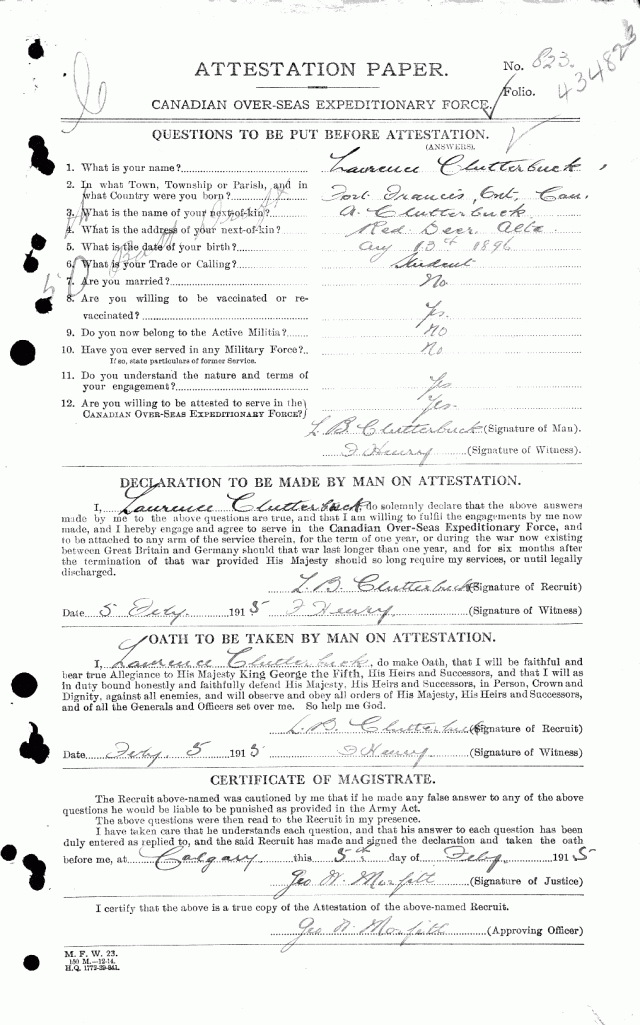 ATTESTATION PAPER.
No. 823.
434823
Folio.
CANADIAN OVER-SEAS EXPEDITIONARY FORCE.
QUESTIONS TO BE PUT BEFORE ATTESTATION.
(ANSWERS).
1. What is your name? Lawrence Clutterbuck
2. In what Town, Township or Parish, and in
what Country were you born? Fort Francis, Ont, Can.
3. What is the name of your next-of-kin? A. Clutterbuck
4. What is the address of your next-of-kin? Red Deer, Alta
5. What is the date of your birth? Aug 13th 1896
6. What is your Trade or Calling? Student
7. Are you married? No
8. Are you willing to be vaccinated or re-
vaccinated? Yes.
9. Do you now belong to the Active Militia? No
10. Have you ever served in any Military Force? No
If so, state particulars of former Service.
11. Do you understand the nature and terms of
your engagement? Yes
12. Are you willing to be attested to serve in the
CANADIAN OVER-SEAS EXPEDITIONARY FORCE? Yes.
L. B. Clutterbuck (Signature of Man).
F Henry (Signature of Witness).
DECLARATION TO BE MADE BY MAN ON ATTESTATION.
I, Lawrence Clutterbuck, do solemnly declare that the above answers
made by me to the above questions are true, and that I am willing to fulfil the engagements by me now
made, and I hereby engage and agree to serve in the Canadian Over-Seas Expeditionary Force, and
to be attached to any arm of the service therein, for the term of one year, or during the war now existing
between Great Britain and Germany should that war last longer than one year, and for six months after
the termination of that war provided His Majesty should so long require my services, or until legally
discharged.
L. B. Clutterbuck (Signature of Recruit)
Date 5 Feby. 1915 F Henry (Signature of Witness)
OATH TO BE TAKEN BY MAN ON ATTESTATION.
I, Lawrence Clutterbuck, do make Oath, that I will be faithful and
bear true Allegiance to His Majesty King George the Fifth, His Heirs and Successors, and that I will as
in duty bound honestly and faithfully defend His Majesty, His Heirs and Successors, in Person, Crown and
Dignity, against all enemies, and will observe and obey all orders of His Majesty, His Heirs and Successors,
and of all the Generals and Officers set over me. So help me God.
L. B. Clutterbuck (Signature of Recruit)
Date Feby. 5 1915 F Henry (Signature of Witness)
CERTIFICATE OF MAGISTRATE.
The Recruit above-named was cautioned by me that if he made any false answer to any of the above
questions he would be liable to be punished as provided in the Army Act.
The above questions were then read to the Recruit in my presence.
I have taken care that he understands each question, and that his answer to each question has been
duly entered as replied to, and the said Recruit has made and signed the declaration and taken the oath
before me, at Calgary this 5th day of Feby. 1915
Geo W. Morfitt (Signature of Justice)
I certify that the above is a true copy of the Attestation of the above-named Recruit.
Geo W. Morfitt (Approving Officer)
M. F. W. 23.
150 M.—12-14.
H.Q. 1772-39-841.